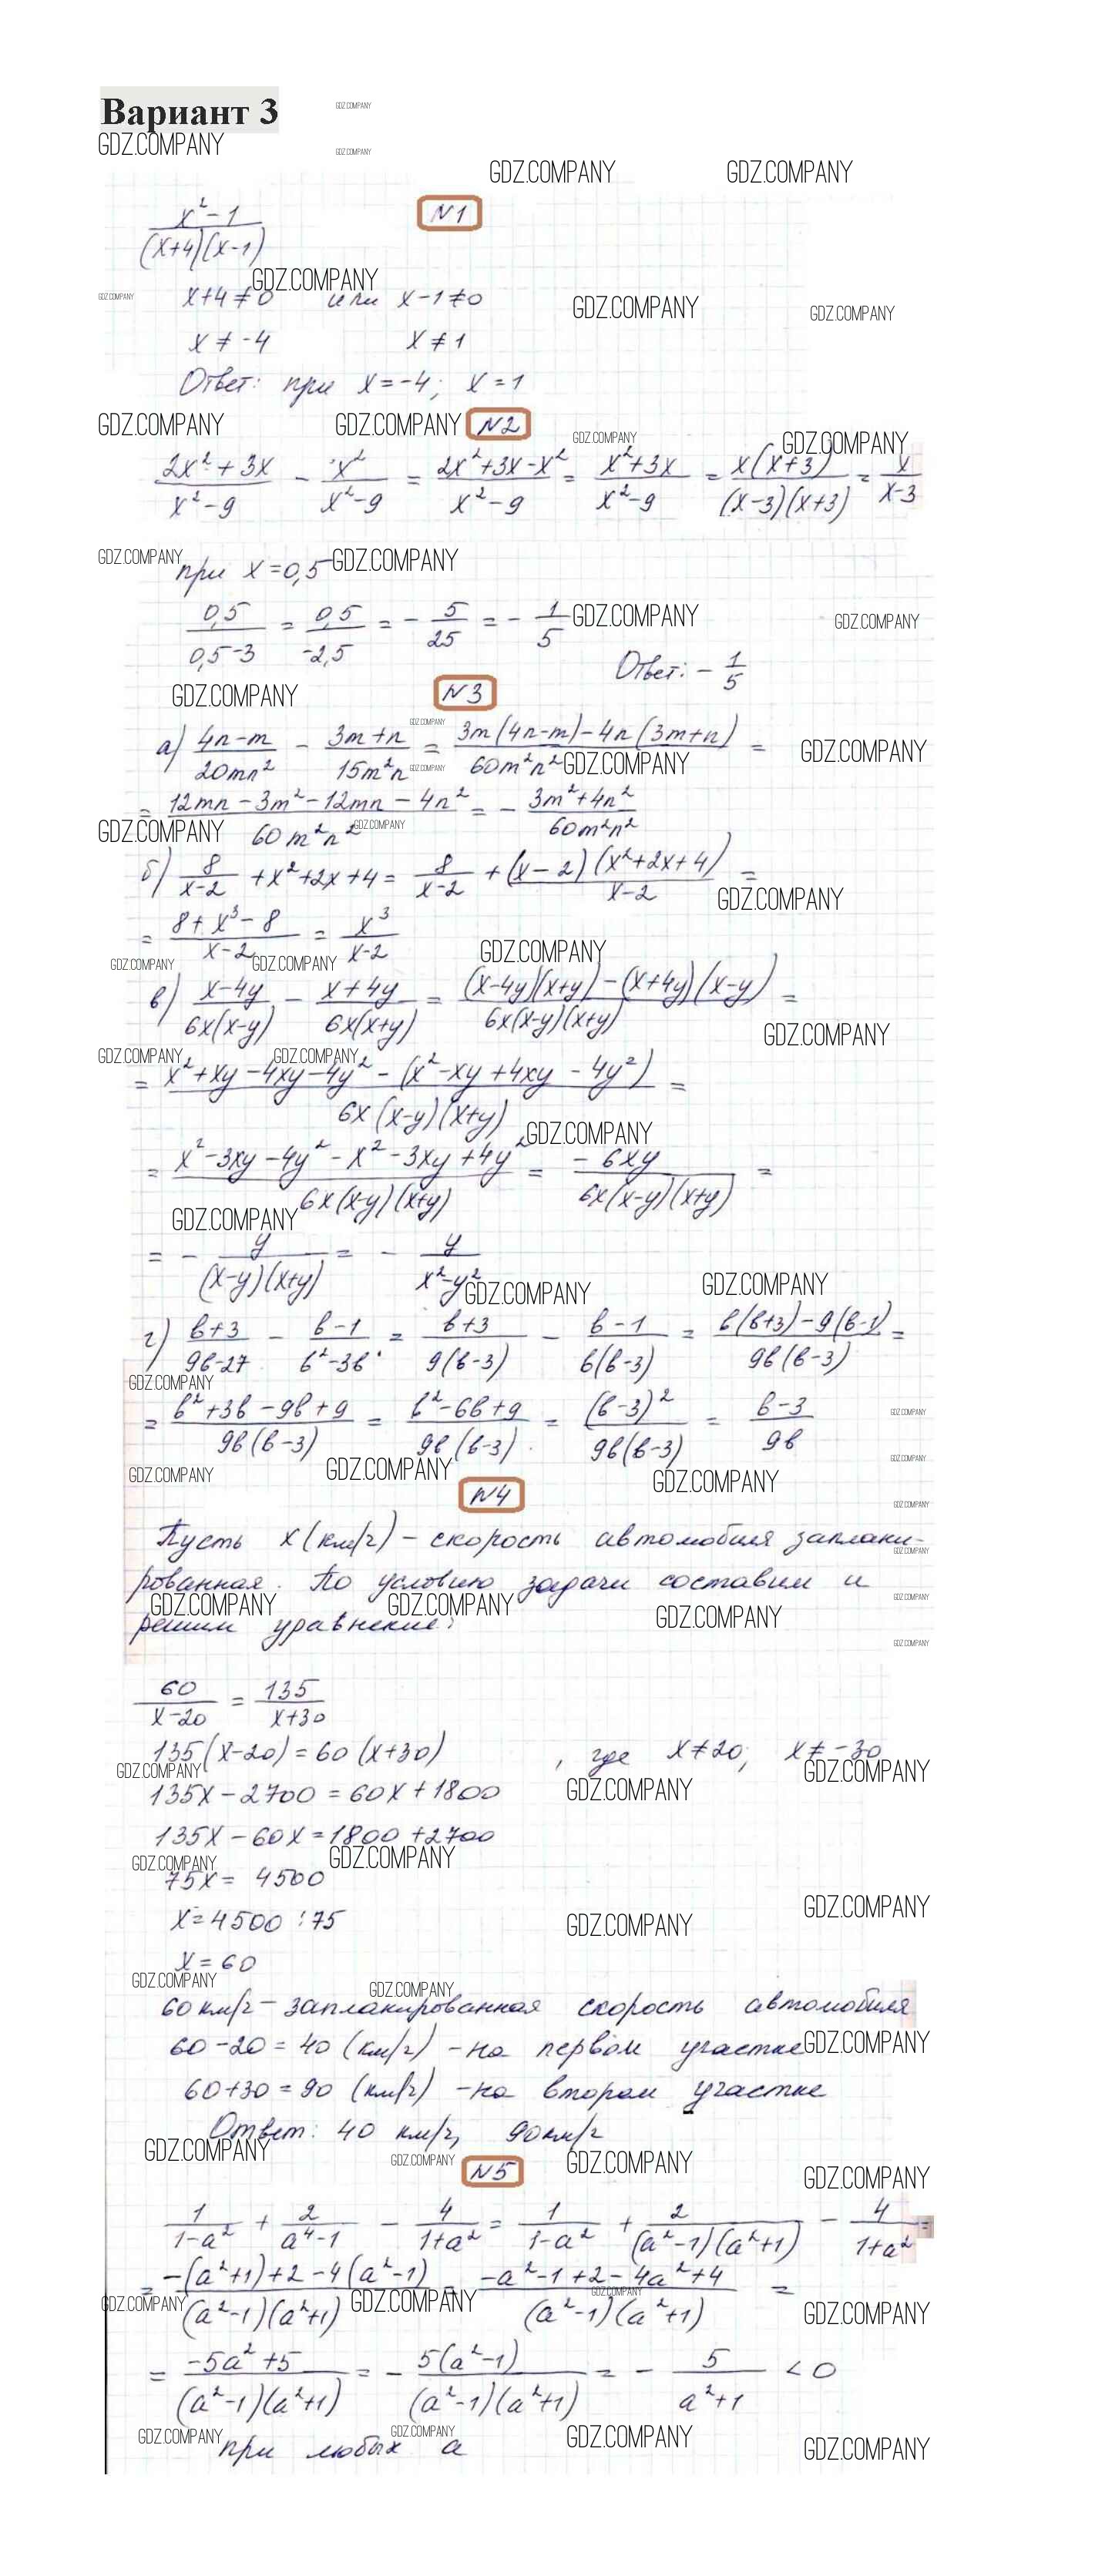 Вариант 3
GDZ.COMPANY
N1
(x²-1)/((x+4)(x-1))
x+4≠0 или x-1≠0
x≠-4 x≠1
Ответ: при x=-4; x=1
N2
(2x²+3x)/(x²-9) - x²/(x²-9) = (2x²+3x-x²)/(x²-9) = (x²+3x)/(x²-9) = x(x+3)/((x-3)(x+3)) = x/(x-3)
при x=0,5
0,5/(0,5-3) = 0,5/(-2,5) = -5/25 = -1/5
Ответ: -1/5
N3
а) (4n-m)/(20mn²) - (3m+n)/(15m²n) = (3m(4n-m)-4n(3m+n))/(60m²n²) =
= (12mn-3m²-12mn-4n²)/(60m²n²) = -(3m²+4n²)/(60m²n²)
б) 8/(x-2) +x²+2x+4 = 8/(x-2) + (x-2)(x²+2x+4)/(x-2) =
= (8+x³-8)/(x-2) = x³/(x-2)
в) (x-4y)/(6x(x-y)) - (x+4y)/(6x(x+y)) = ((x-4y)(x+y)-(x+4y)(x-y))/(6x(x-y)(x+y)) =
= (x²+xy-4xy-4y²-(x²-xy+4xy-4y²))/(6x(x-y)(x+y)) =
= (x²-3xy-4y²-x²-3xy+4y²)/(6x(x-y)(x+y)) = (-6xy)/(6x(x-y)(x+y)) =
= -y/((x-y)(x+y)) = -y/(x²-y²)
г) (b+3)/(9b-27) - (b-1)/(b²-3b) = (b+3)/(9(b-3)) - (b-1)/(b(b-3)) = (b(b+3)-9(b-1))/(9b(b-3)) =
= (b²+3b-9b+9)/(9b(b-3)) = (b²-6b+9)/(9b(b-3)) = (b-3)²/(9b(b-3)) = (b-3)/(9b)
N4
Пусть x(км/ч) - скорость автомобиля заплани-
рованная. По условию задачи составим и
решим уравнение:
60/(x-20) = 135/(x+30)
135(x-20)=60(x+30) , где x≠20; x≠-30
135x-2700=60x+1800
135x-60x=1800+2700
75x=4500
x=4500:75
x=60
60 км/ч - запланированная скорость автомобиля
60-20=40 (км/ч) - на первом участке
60+30=90 (км/ч) - на втором участке
Ответ: 40 км/ч, 90 км/ч
N5
1/(1-a²) + 2/(a⁴-1) - 4/(1+a²) = 1/(1-a²) + 2/((a²-1)(a²+1)) - 4/(1+a²) =
= (-(a²+1)+2-4(a²-1))/((a²-1)(a²+1)) = (-a²-1+2-4a²+4)/((a²-1)(a²+1)) =
= (-5a²+5)/((a²-1)(a²+1)) = -5(a²-1)/((a²-1)(a²+1)) = -5/(a²+1) < 0
при любых a